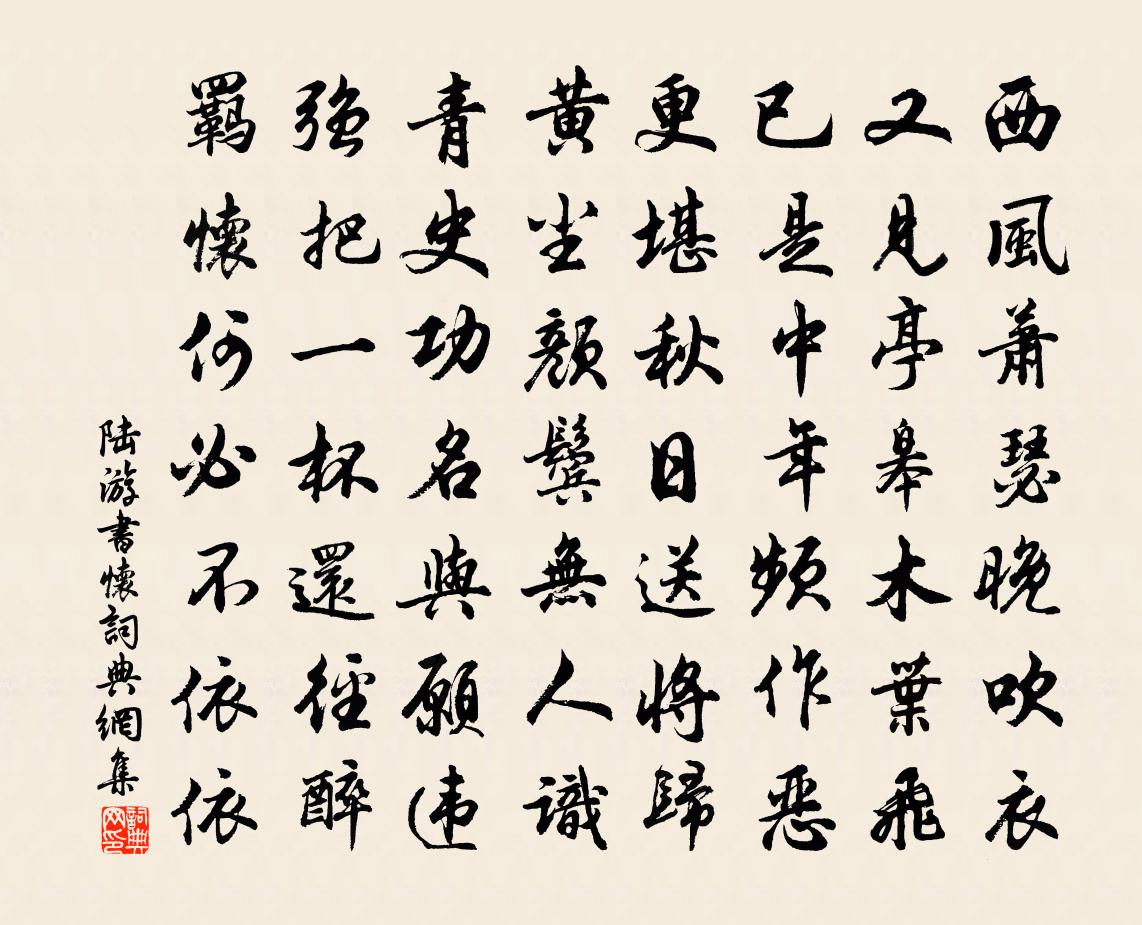 西風蕭瑟晚吹衣
又見亭皋木葉飛
已是中年頻作惡
更堪秋日送將歸
黃尘顏鬓無人識
青史功名與願违
強把一杯還徑醉
羈懷何必不依依
陆游書懷詞典網集
詞典网印